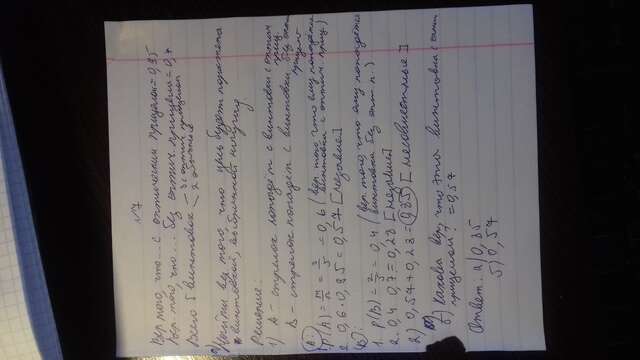 №7
Вер. того, что... с оптическим прицелом = 0,95
Вер. того, что... без оптич. прицела = 0,7
Всего 5 винтовок 3 с оптич. прицелом
2 без
Найти вер. того, что цель будет поражена
винтовкой, выбранной наугад
Решение:
1) А - стрелок попадёт с винтовки с оптич.
приц.
В - стрелок попадёт с винтовки без оптич
прицела
А:
1. P(A) = m/n = 3/5 = 0,6 (вер. того что ему попадётся
винтовка с оптич. приц.)
2. 0,6 · 0,95 = 0,57 [независ]
В:
1. P(B) = 2/5 = 0,4 (вер. того, что ему попадётся
винтовка без опт. п.)
2. 0,4 0,7 = 0,28 [независ]
2) 0,57 + 0,28 = 0,85 [несовместные]
б) Какова вер, что эта винтовка с
прицелом? = 0,57
Ответ: а) 0,85
б) 0,57